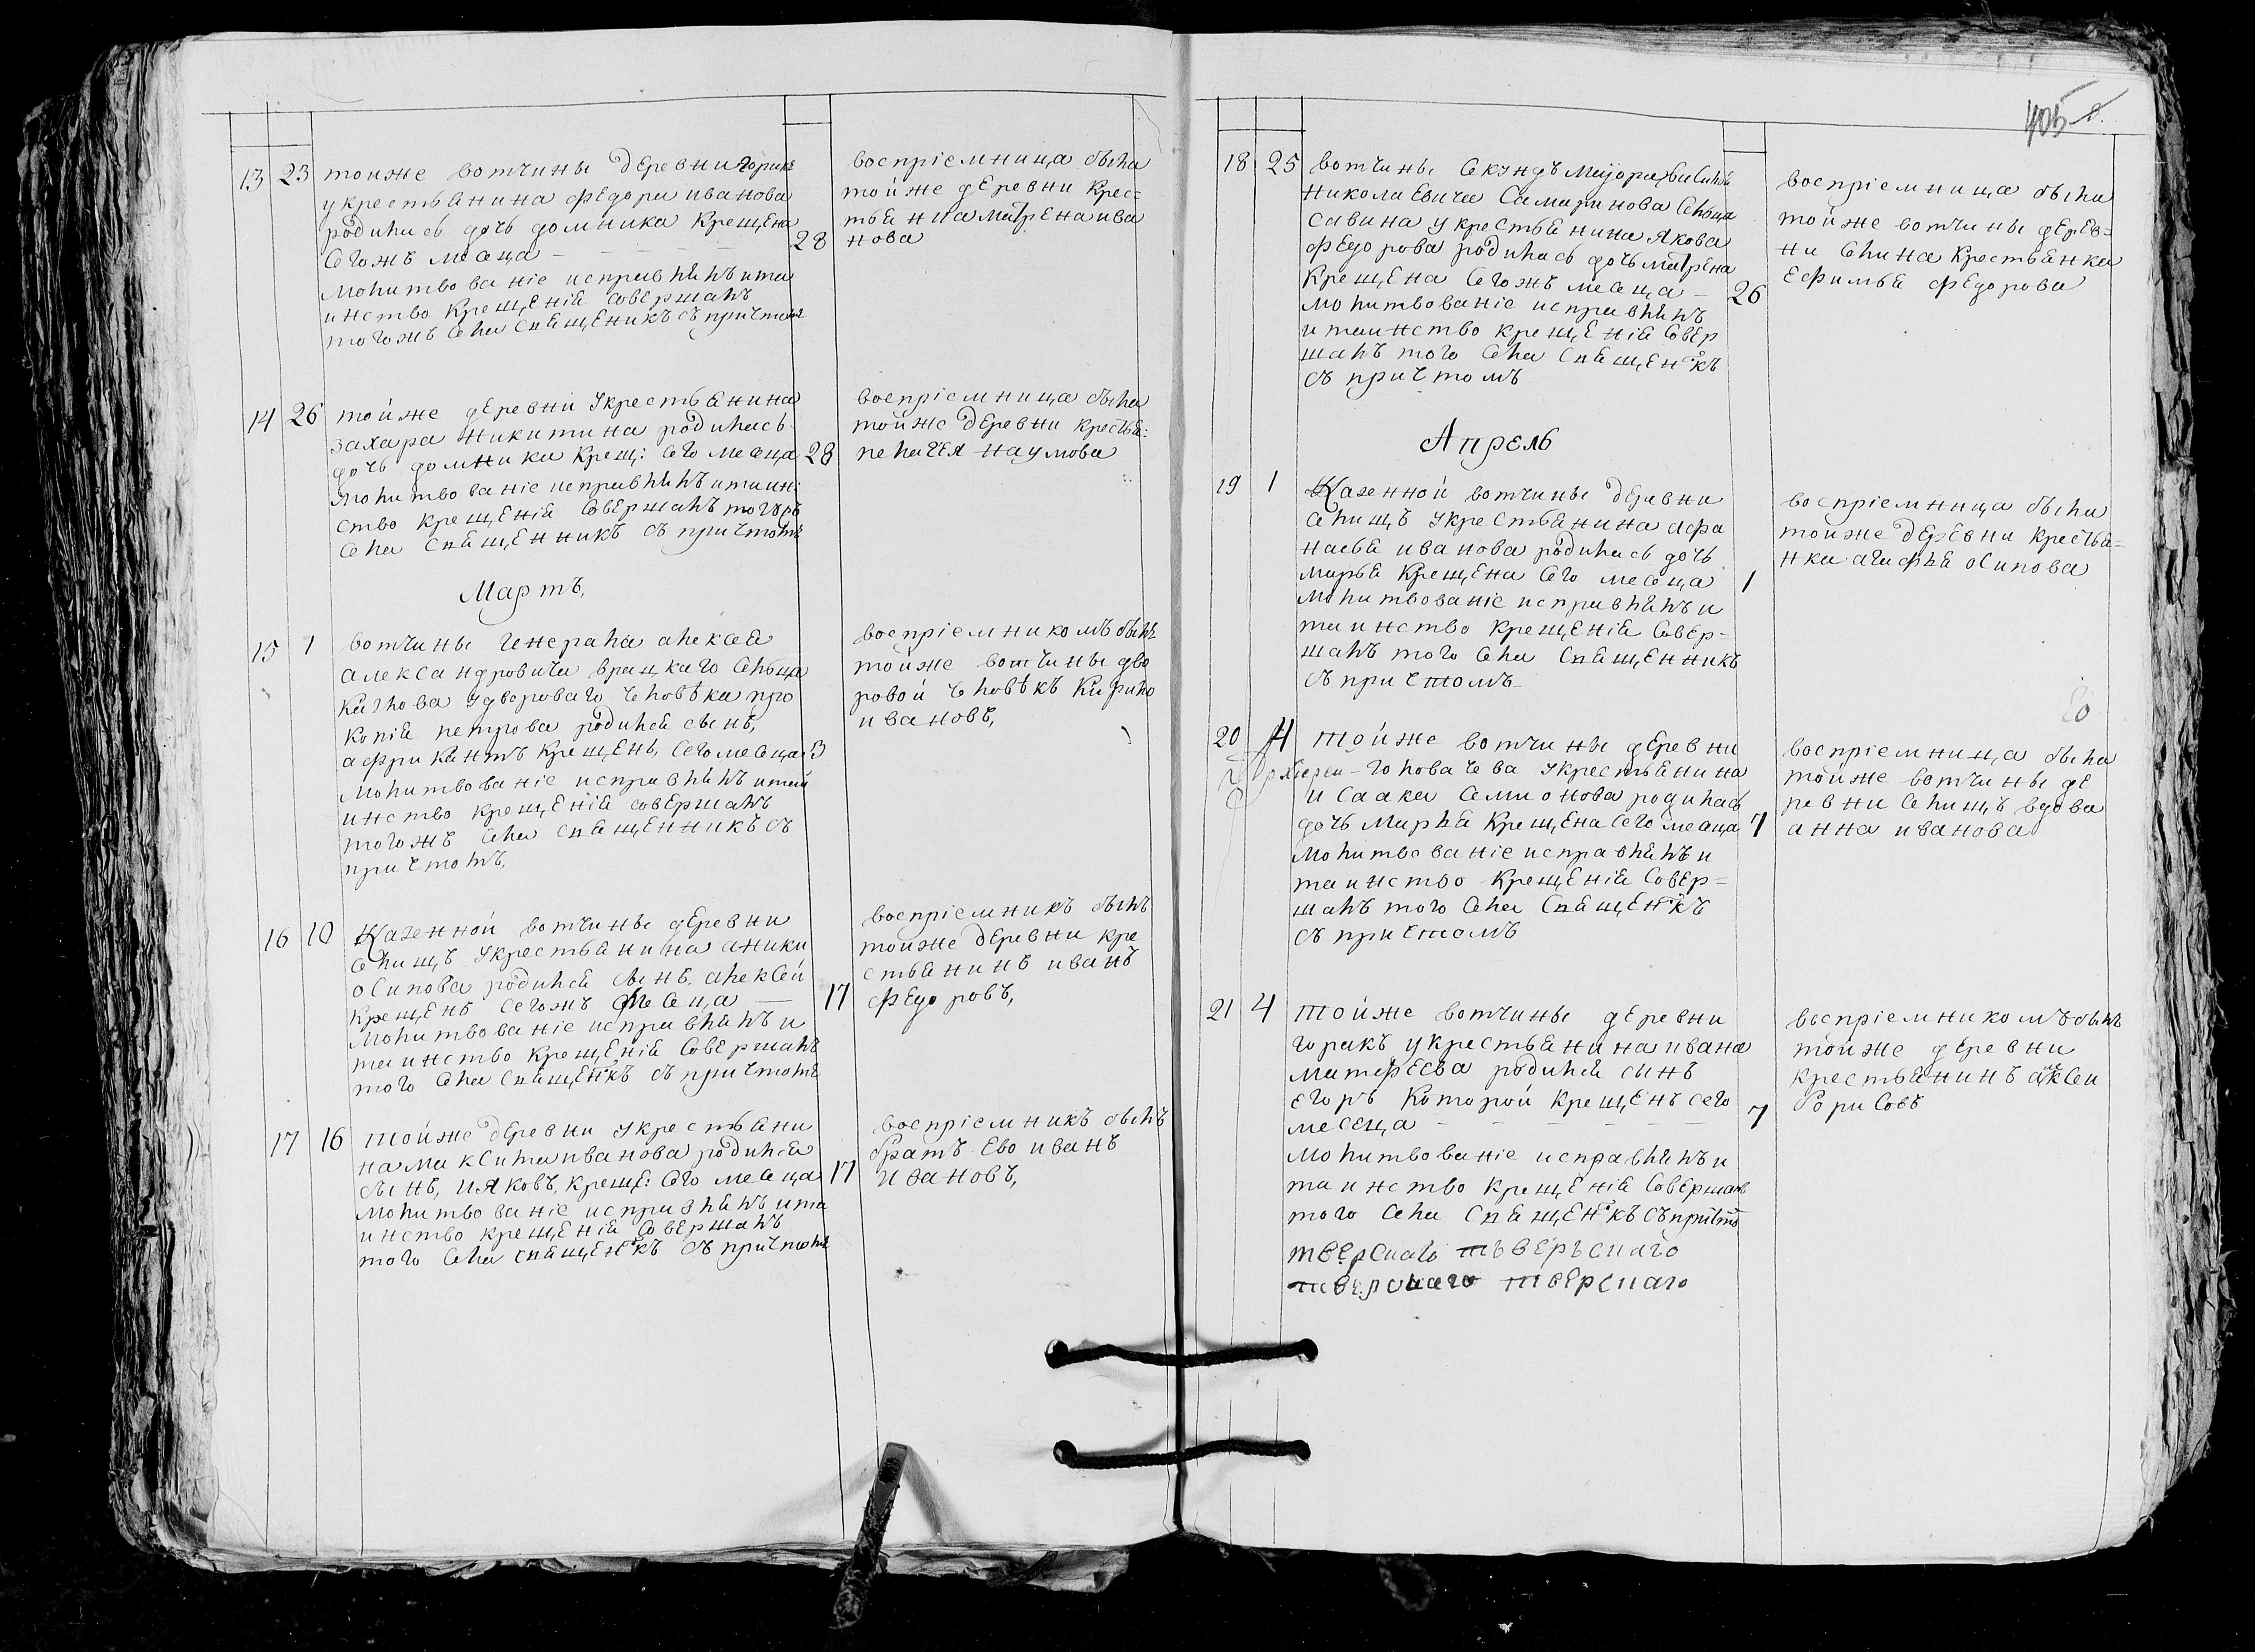 13 23 тоиже вотчины деревни горикъ
укрестьянина федора иванова
родилась дочь домника крещена
сегожъ месеца 28
молитвование исправлялъ ита
инство крещенія совершалъ
тогожъ села священикъ съ причтомъ
восприемница была
тойже деревни крес=
тьянка матрена ива
нова
14 26 тойже деревни укрестьянина
захара никитина родилась
дочь домника крещ: сего месеца 28
молитвованіе исправлялъ итаин:
ство крещенія совершалъ тогожъ
села священникъ съ причтомъ
воспріемница была
тойже деревни крестья:
наумова
Мартъ,
15 1 вотчины генерала алексея
александровича сельца
удороваго человѣка про
копія петрова родился сынъ,
африкантъ крещенъ, сего месеца 3
молитвованіе исправлялъ итаи
инство крещенія совершалъ
тогожъ села священникъ съ
причтомъ,
воспріемникомъ былъ
тойже вотчины дво
ровой человѣкъ Кирило
ивановъ,
16 10 Казенной вотчины деревни
селищъ укрестьянина аники
осипова родился сынъ. алексей
крещенъ сегожъ месеца — 17
молитвованіе исправлялъ и
таинство крещенія совершалъ
того села священ̃къ съ причтомъ
воспріемникъ былъ
тоиже деревни кре
стьянинъ иванъ
федоровъ,
17 16 тойже деревни укрестьяни
на максима иванова родился
сынъ, ияковъ, креще: сего месеца 17
молитвованіе исправлялъ ита
инство крещенія совершалъ
того села священ̃къ съ причтомъ
воспріемникъ былъ
братъ ево иванъ
ивановъ,
405
18 25 вотчины секундъ маиора василья
николаевича самаринова сельца
савина укрестьянина якова
федорова родилась дочь матрена
крещена сегожъ месеца — 26
молитвованіе исправлялъ
и таинство крещенія совер
шалъ того села священ̃къ
съ причтомъ
воспріемница была
тойже вотчины дерев=
ни селина крестьянка
ефимья федорова
Апрель
19 1 Казенной вотчины деревни
селищъ укрестьянина афа
насья иванова родилась дочь
марья крещена сего месеца 1
молитвованіе исправлялъ и
таинство крещенія совер=
шалъ того села священникъ
съ причтомъ
воспріемница была
тоиже деревни крестья=
нка агафья осипова
20 4 тойже вотчины деревни
головачева укрестьянина
исаака семионова родилась
дочь марья крещена сего месеца 7
молитвованіе исправлялъ и
таинство крещенія совер=
шалъ того села священ̃къ
съ причтомъ
воспріемница была
тойже вотчины де
ревни селищъ вдова
анна иванова
21 4 тойже вотчины деревни
горикъ укрестьянина ивана
матфеева родился сынъ
егоръ которой крещенъ сего
месеца 7
молитвованіе исправлялъ и
таинство крещенія совершалъ
того села священ̃къ съпричто
тверскаго тьверьскаго
тверскаго тверскаго
воспріемникомъ былъ
тойже деревни
крестьянинъ алексеи
борисовъ